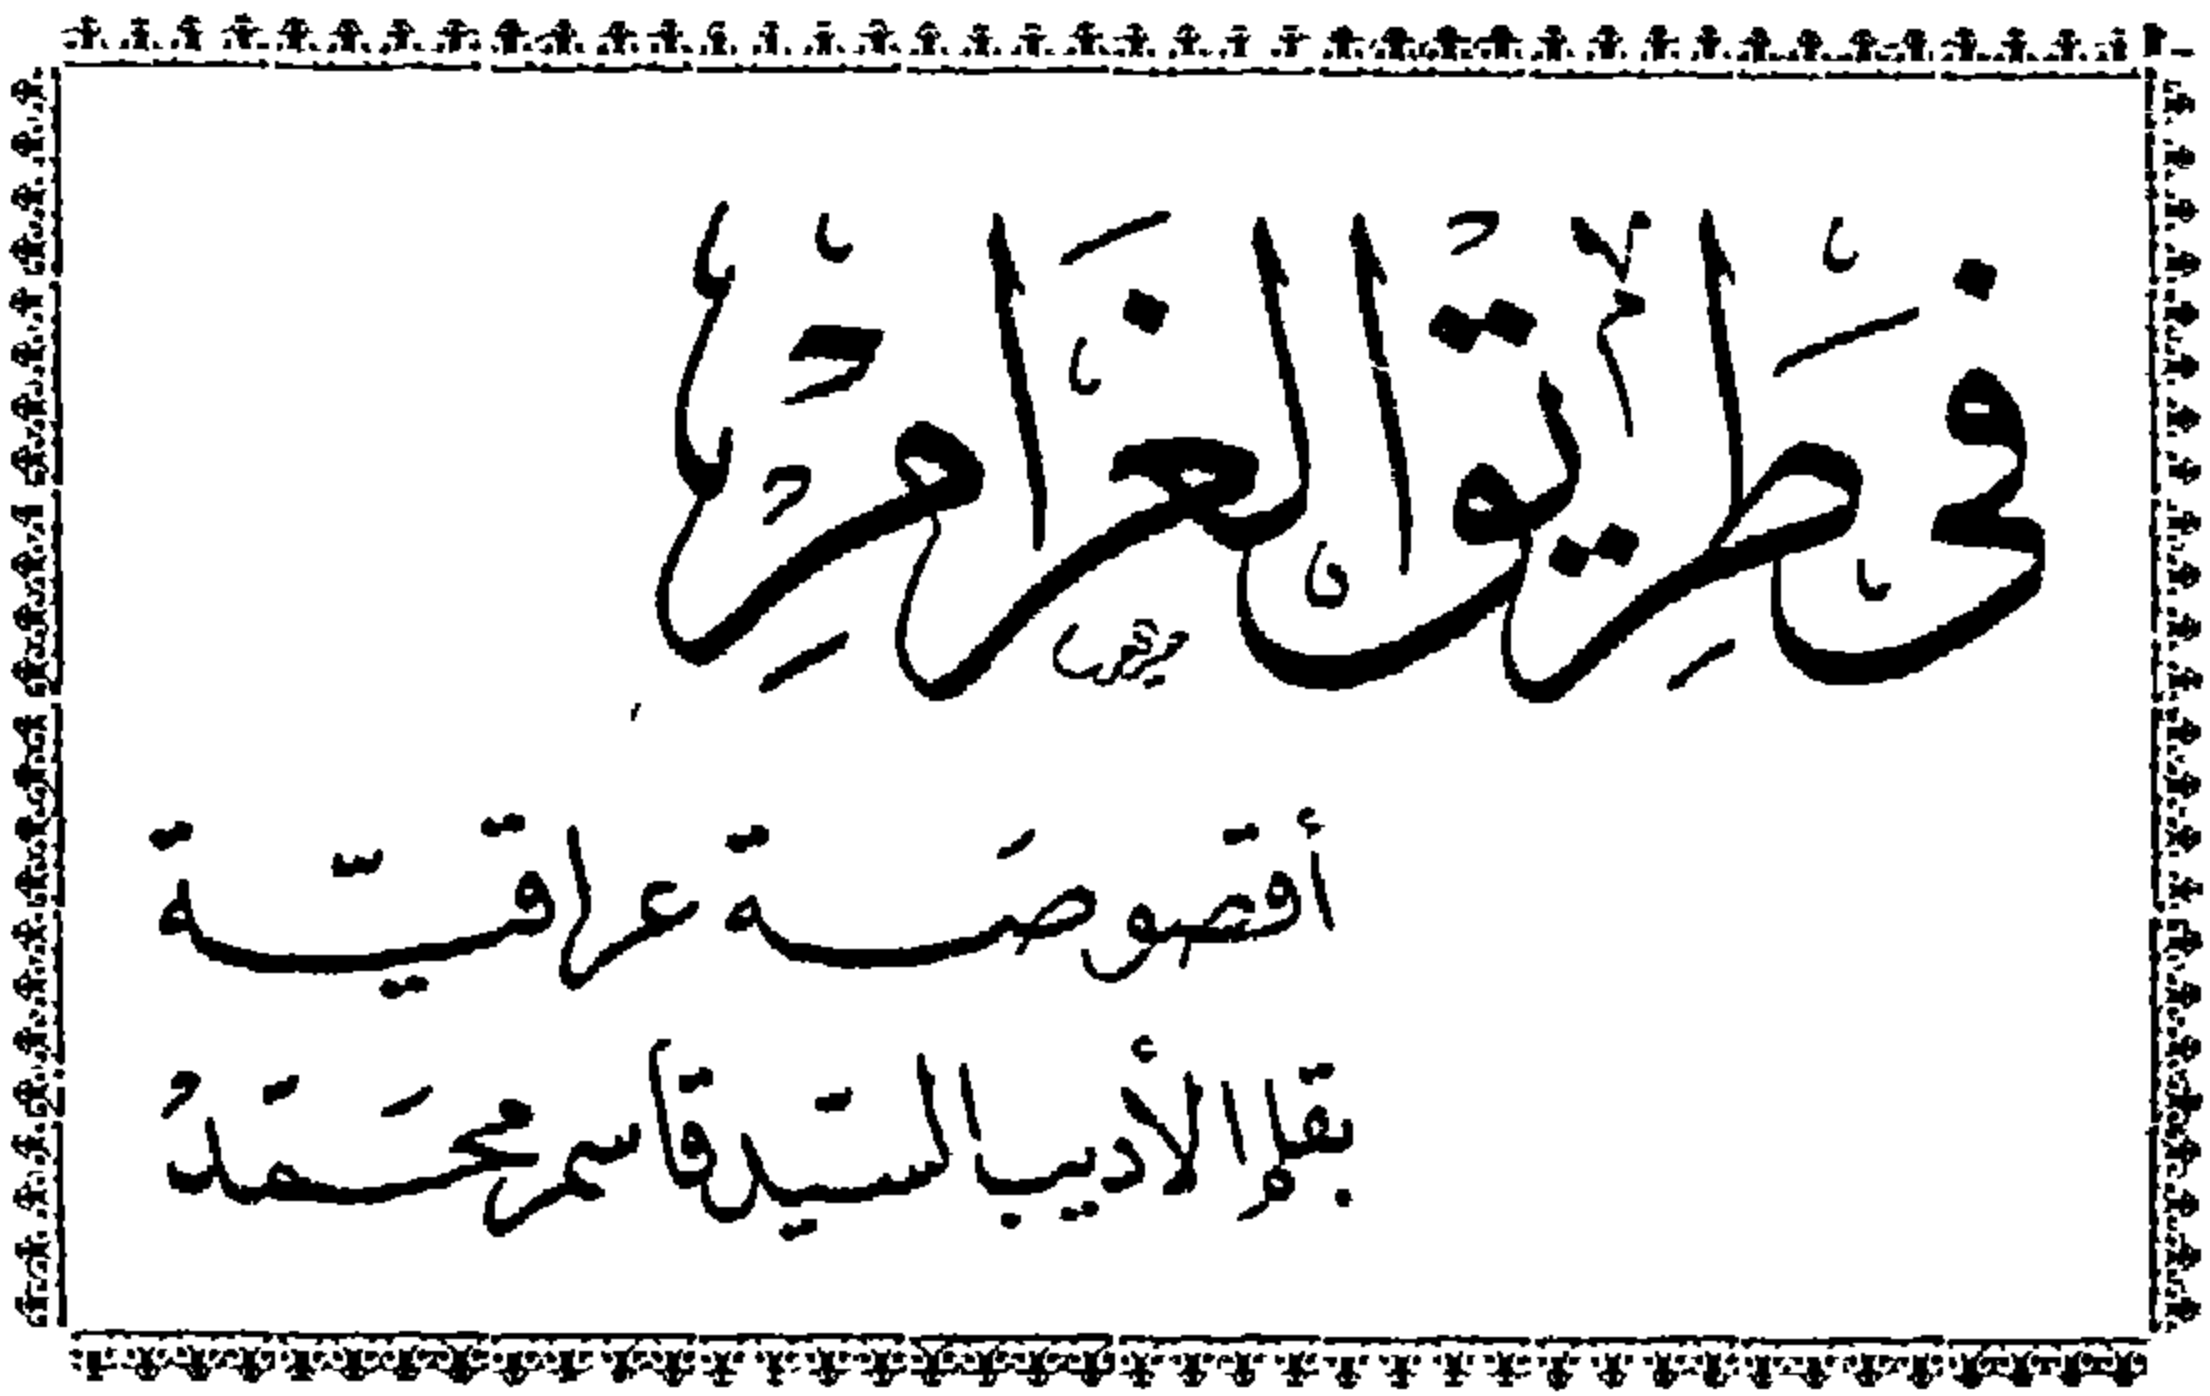 في طريق الغرام
أقصوصة عراقية
بقلم الأديب السيد قاسم محمد